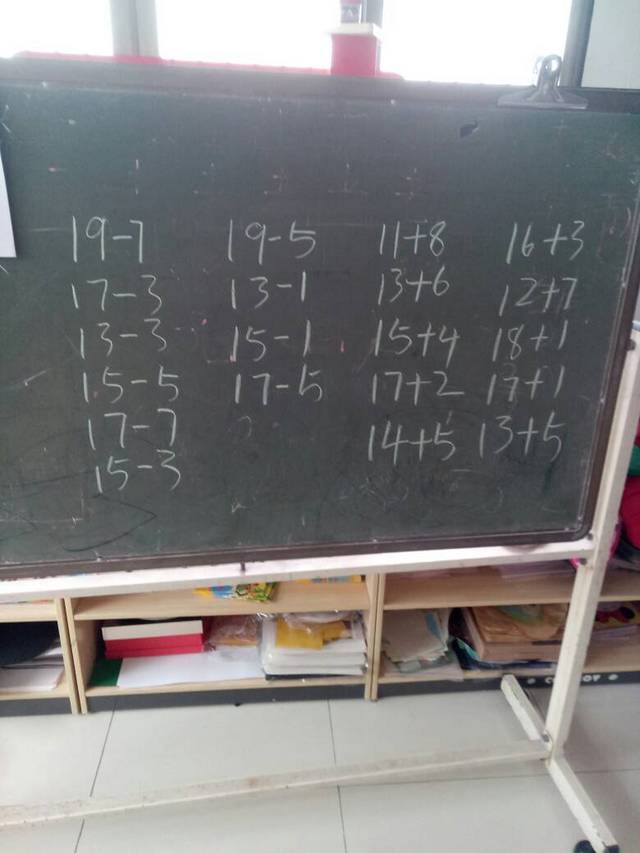 19-7 19-5 11+8 16+3
17-3 13-1 13+6 12+7
13-3 15-1 15+4 18+1
15-5 17-5 17+2 17+1
17-7 14+5 13+5
15-3